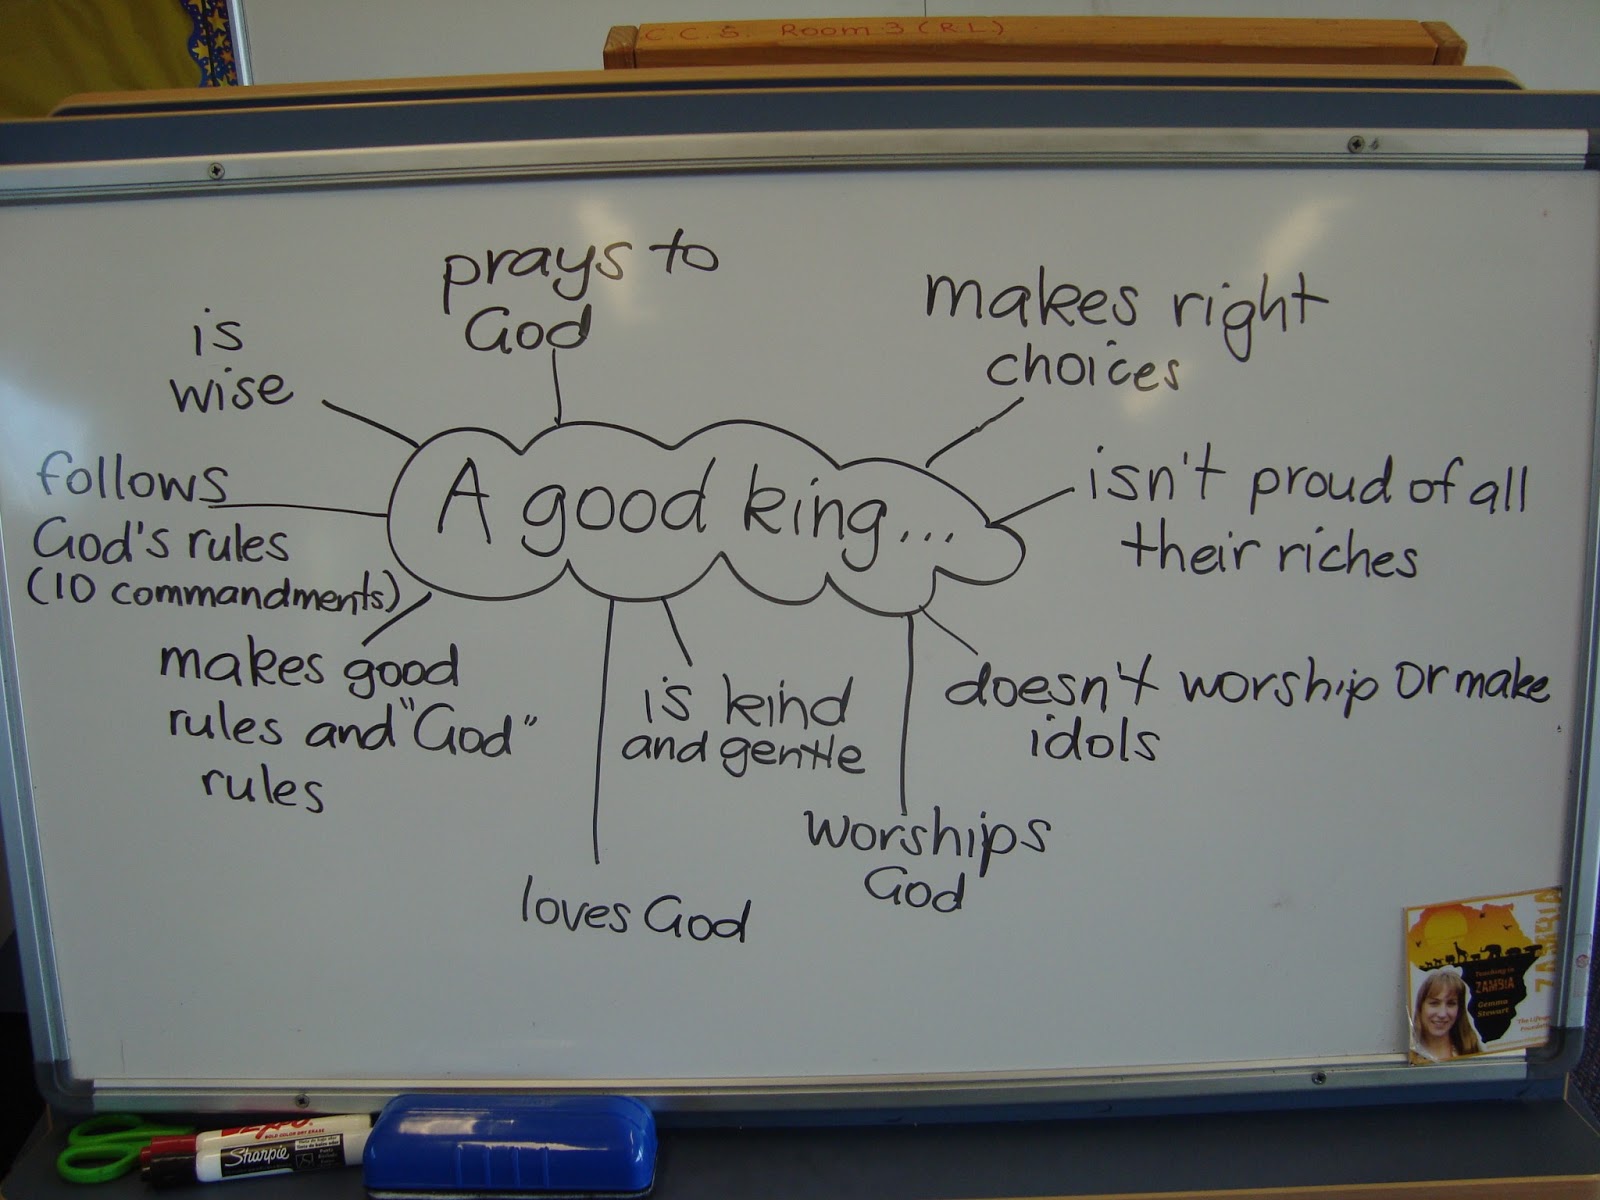 C.C.S. Room 3 (R.L)
prays to
God
is
wise
makes right
choices
follows
God's rules
(10 commandments)
A good king...
isn't proud of all
their riches
makes good
rules and "God"
rules
is kind
and gentle
doesn't worship or make
idols
worships
God
loves God
ZAMBIA
Teaching in
ZAMBIA
Gemma
Stewart
EXPO
Sharpie